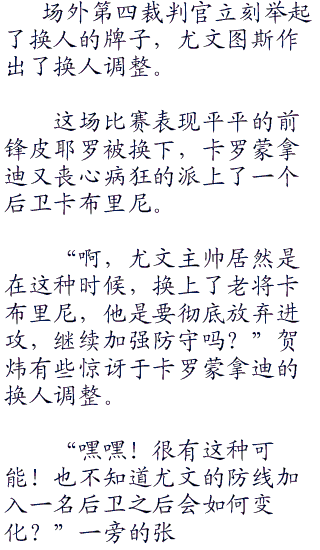 场外第四裁判官立刻举起
了换人的牌子，尤文图斯作
出了换人调整。
这场比赛表现平平的前
锋皮耶罗被换下，卡罗蒙拿
迪又丧心病狂的派上了一个
后卫卡布里尼。
“啊，尤文主帅居然是
在这种时候，换上了老将卡
布里尼，他是要彻底放弃进
攻，继续加强防守吗？”贺
炜有些惊讶于卡罗蒙拿迪的
换人调整。
“嘿嘿！很有这种可
能！也不知道尤文的防线加
入一名后卫之后会如何变
化？”一旁的张